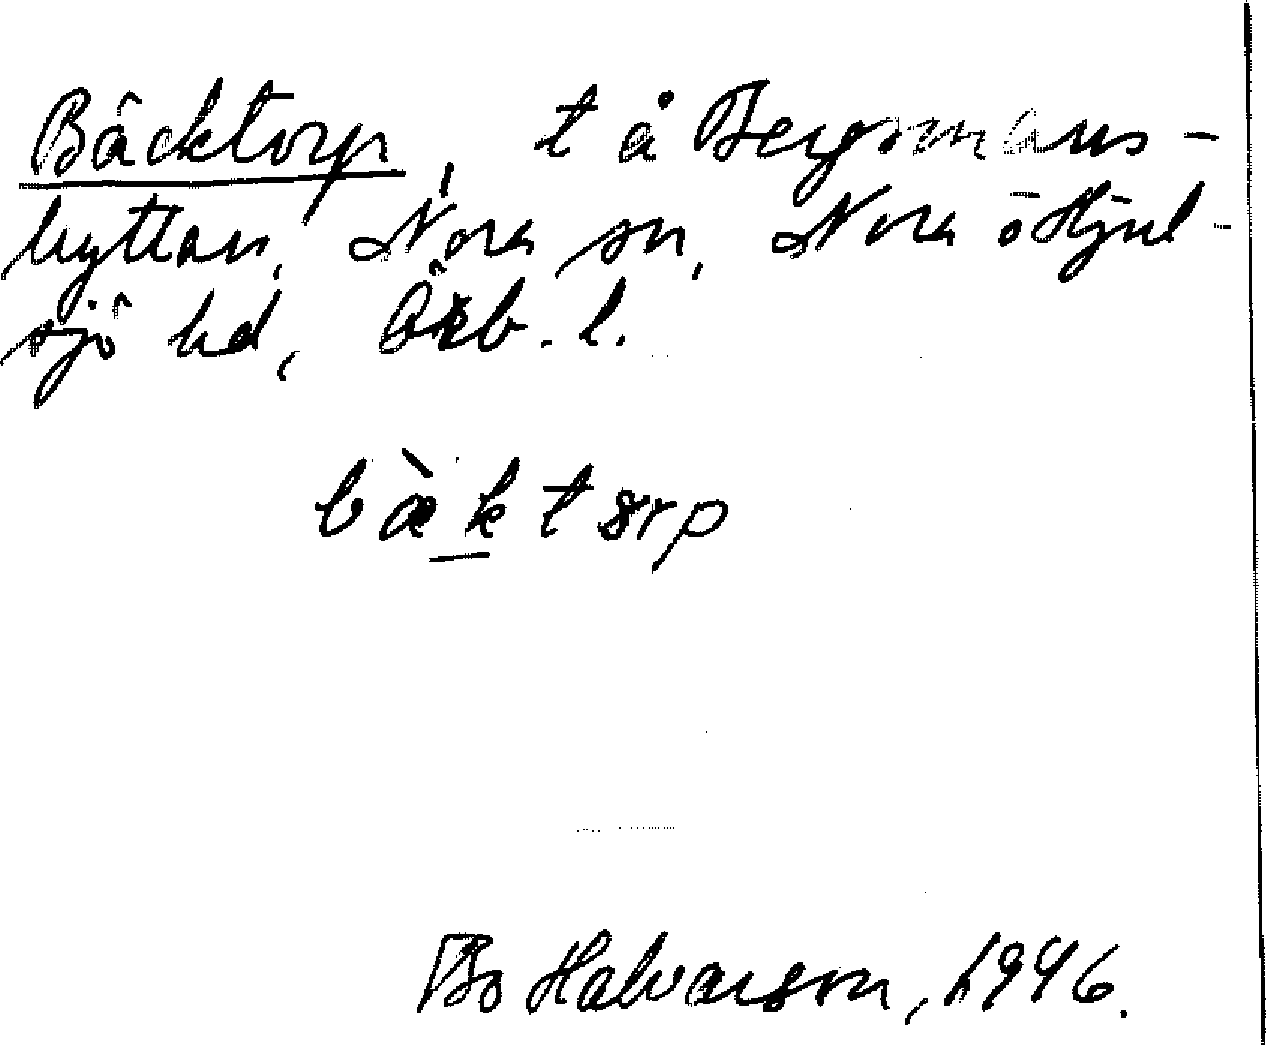 Bäcktorp, t å Bergsmans-
hyttan, Nora sn, Nora ō Hjul-
sjö hd, Örb. l.
bàktorp
Bo Halvarson, 1946.